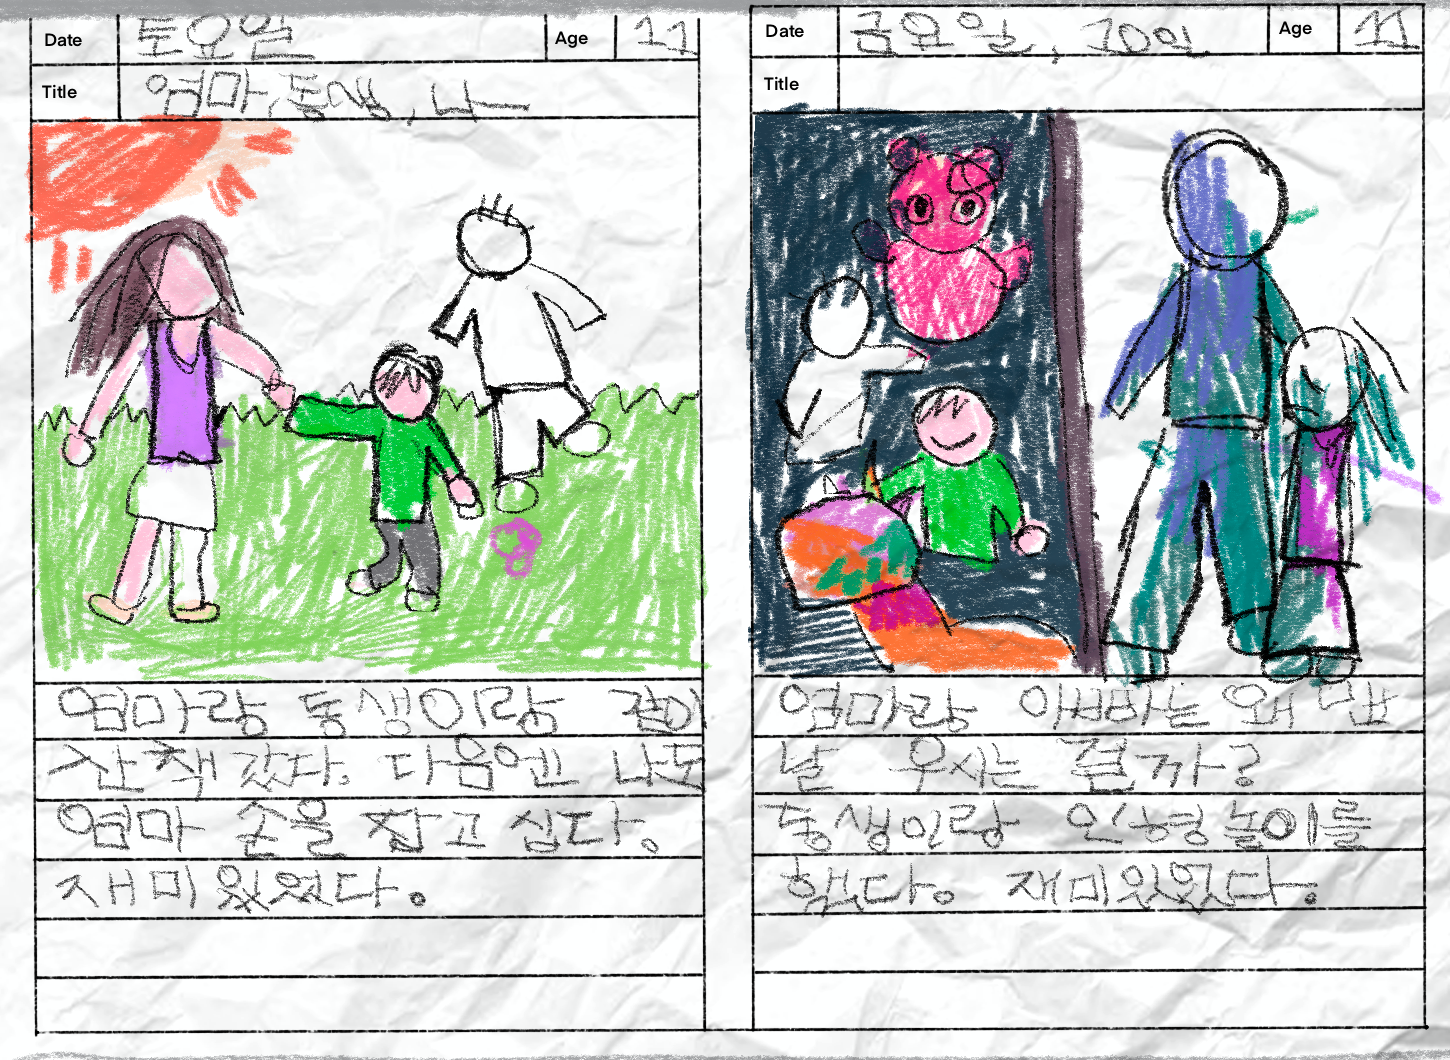 Date 토요일 Age 11
Title 엄마, 동생, 나
엄마랑 동생이랑 같이
산책 갔다. 다음엔 나도
엄마 손을 잡고 싶다.
재미있었다.
Date 금요일, 10일 Age 11
Title
엄마랑 아빠는 왜 맨
날 우시는 걸까?
동생이랑 인형놀이를
했다. 재미있었다.